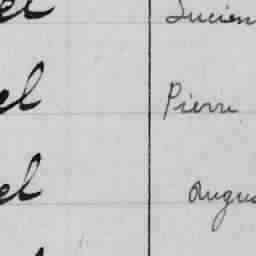 el Lucien
el Pierre
el Augus